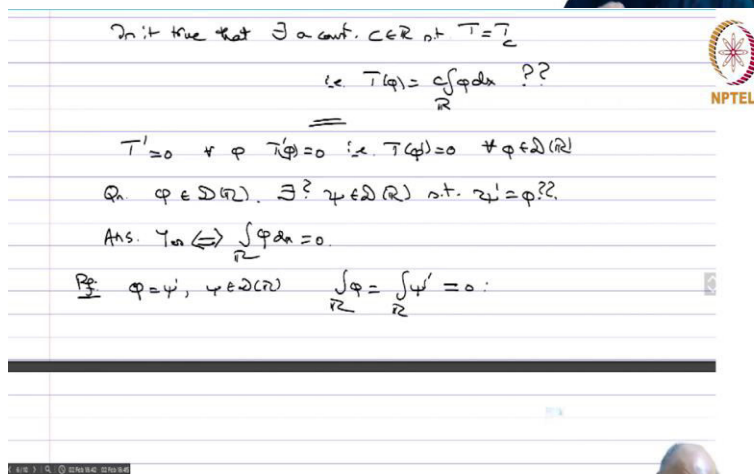 Is it true that ∃ a const. C∈ℝ s.t. T=T_c
i.e. T(φ) = c∫_ℝ φdx ??
NPTEL
T'=0 ∀ φ T'(φ)=0 i.e. T(φ')=0 ∀ φ∈D(ℝ)
Qn. φ∈D(ℝ). ∃? ψ∈D(ℝ) s.t. ψ'=φ??.
Ans. Yes ⟺ ∫_ℝ φdx=0.
Pf: φ=ψ', ψ∈D(ℝ) ∫_ℝ φ = ∫_ℝ ψ' = 0 :